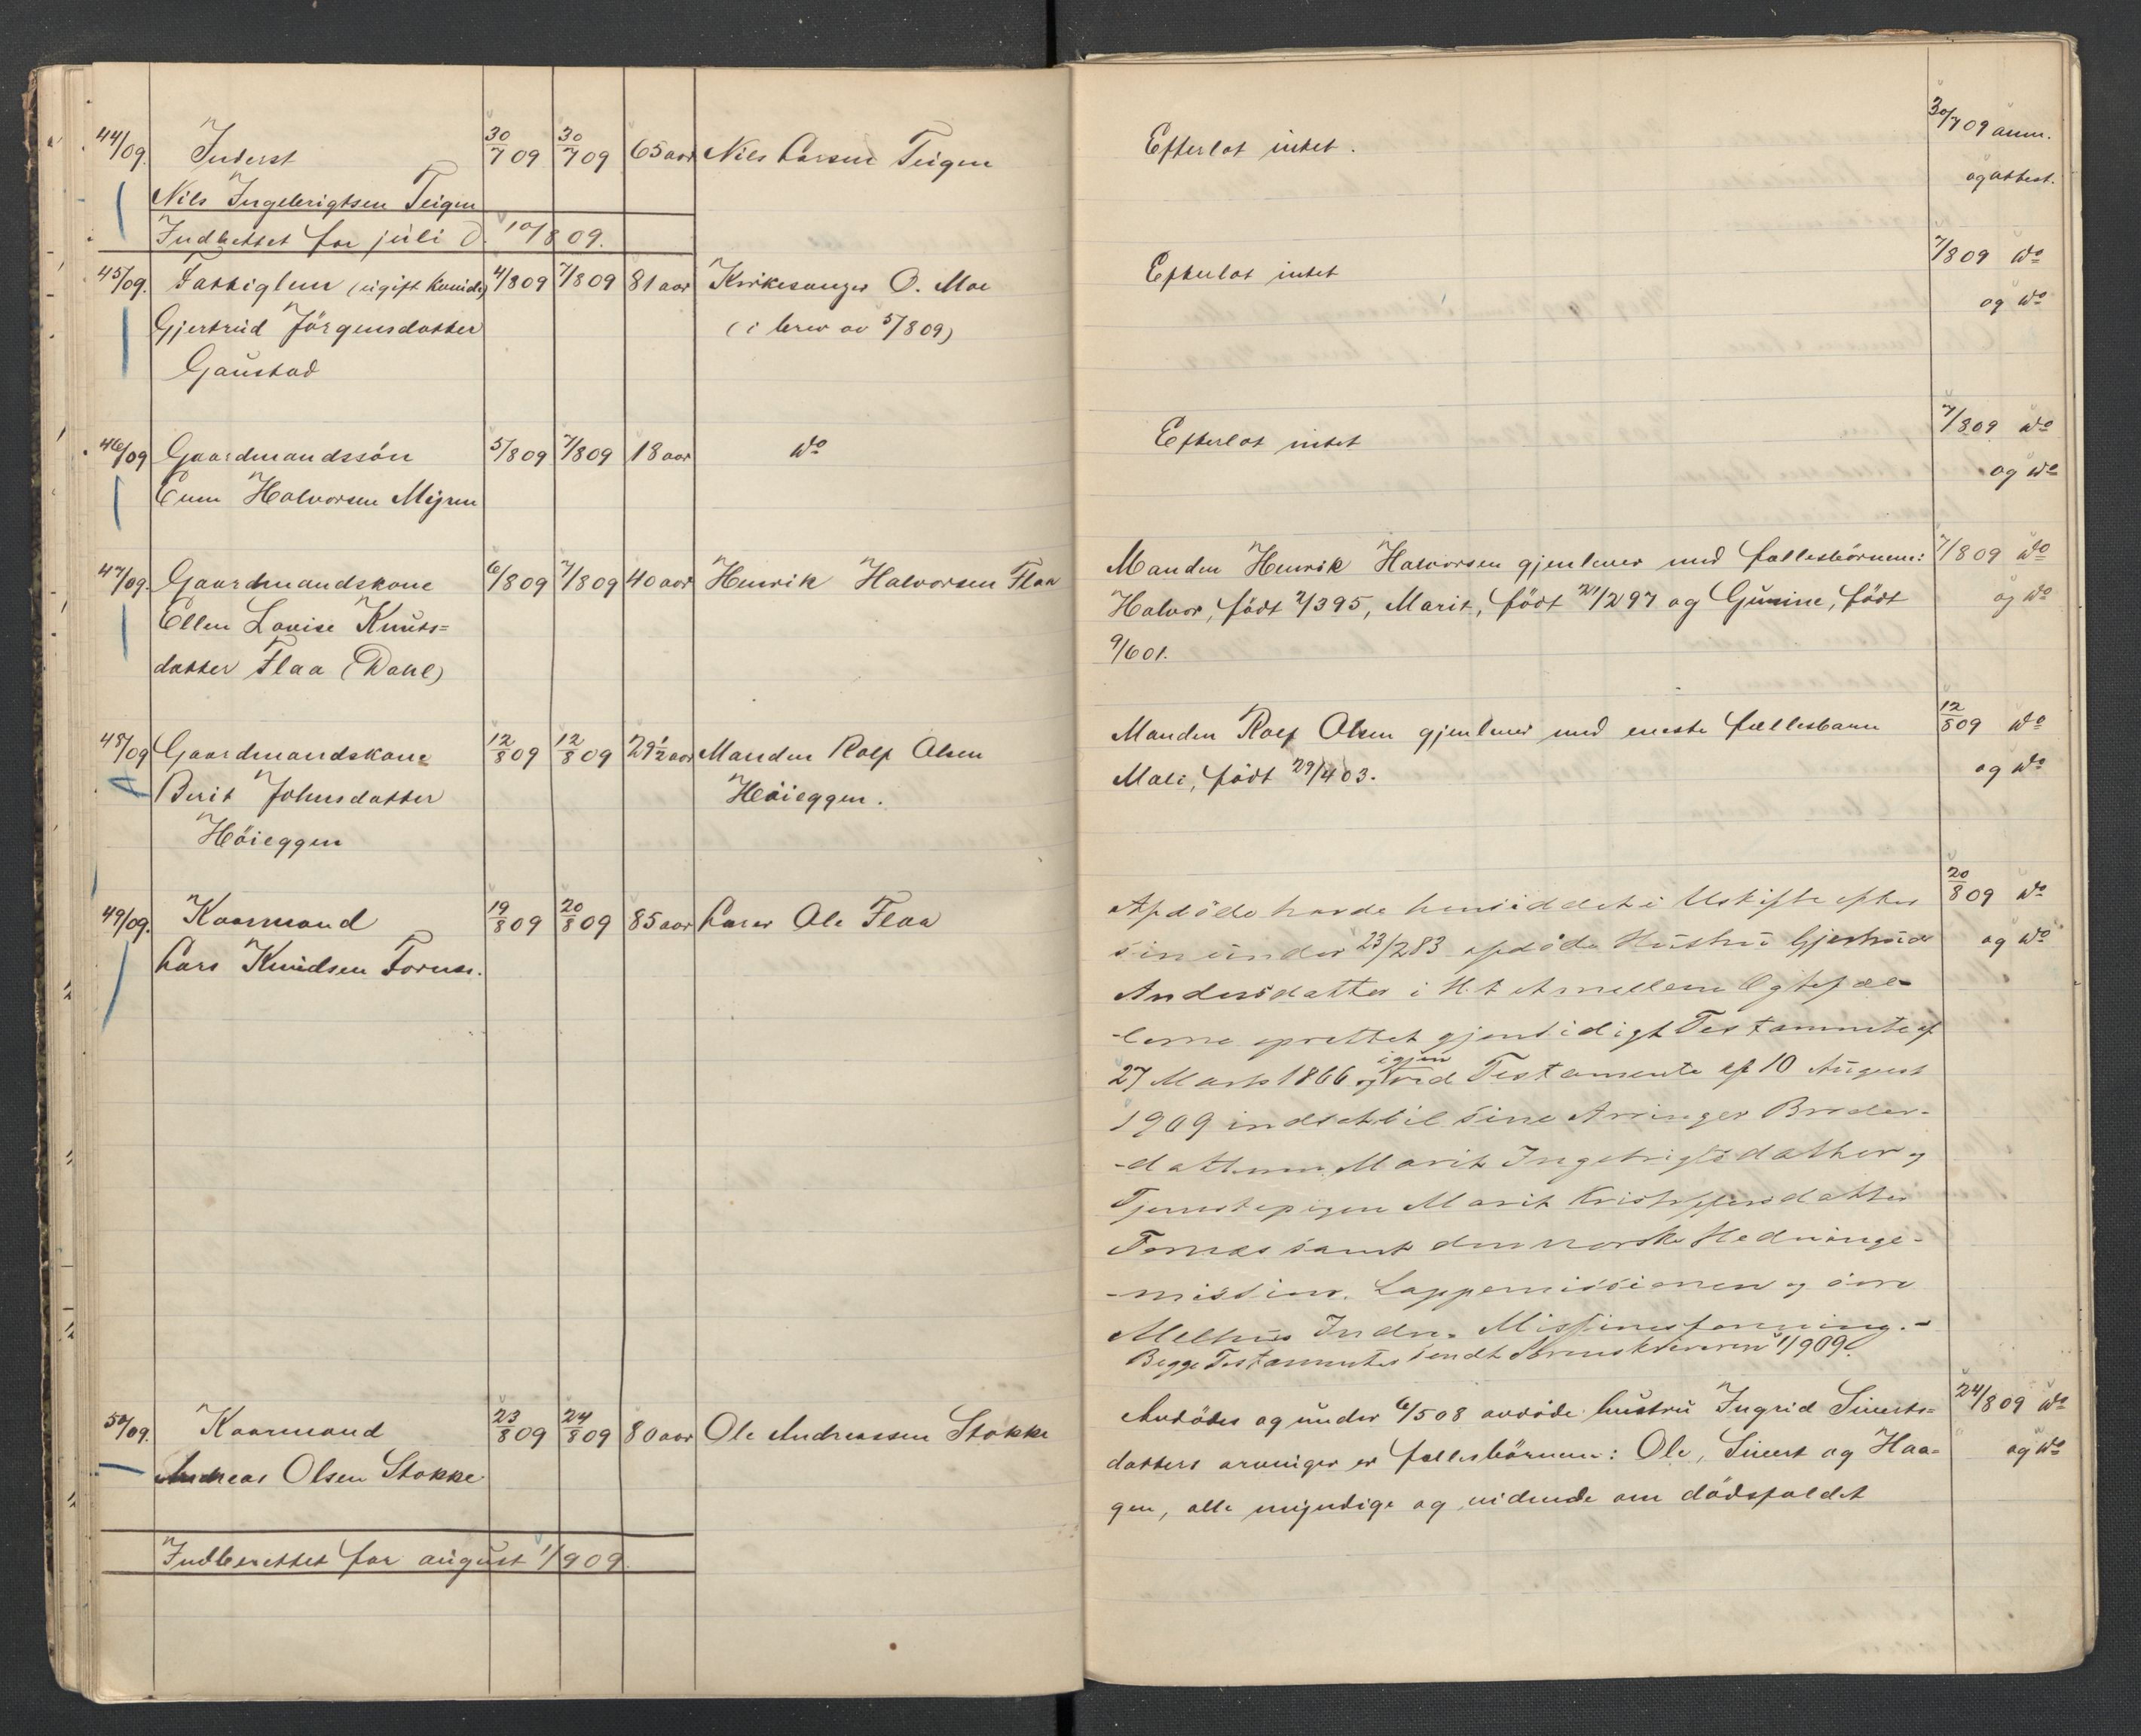 44/09. Inderst 30/7 09 30/7 09 65 aar Nils Larsen Teigen Efterlot intet. 30/7 09 anm.
Nils Ingebrigtsen Teigen og attest.
Indberettet for juli d. 10/8 09.
45/09. Fattiglem (ugift kvinde) 4/8 09 7/8 09 81 aar Kirkesanger O. Moe Efterlot intet 7/8 09 do
Gjertrud Jörgensdatter (i brev av 5/8 09) og do
Gaustad
46/09 Gaardmandssön 5/8 09 7/8 09 18 aar do Efterlot intet 7/8 09 do
Even Halvorsen Myren og do
47/09. Gaardmandskone 6/8 09 7/8 09 40 aar Henrik Halvorsen Flaa Manden Henrik Halvorsen gjenlever med fællesbörnene: 7/8 09 do
Ellen Lovise Knuts= Halvor, födt 2/3 95, Marit, födt 21/2 97 og Gunine, födt og do
datter Flaa (Dahl) 9/6 01.
48/09 Gaardmandskone 12/8 09 12/8 09 29 1/2 aar Manden Rolf Olsen Manden Rolf Olsen gjenlever med eneste fællesbarn 12/8 09 do
Berit Johnsdatter Höieggen. Mali, födt 29/4 03. og do
Höieggen
49/09. Kaarmand 19/8 09 20/8 09 85 aar Lærer Ole Flaa Afdöde havde hensiddet i Uskifte efter 20/8 09 do
Lars Knudsen Fornes. sin under 23/2 83 afdöde Hustru Gjertrud og do
Andersdatter i H.t. et mellem Ægtefæl-
-lerne oprettet gjensidigt Testamente af
27 Marts 1866 og igjen ved Testamente af 10 August
1909 indsat til sine Arvinger Broder-
-datteren Marit Ingebrigtsdatter og
Tjenestepigen Marit Kristoffersdatter
Fornes samt den norske Hedninge-
-mission, Lappemissionen og
Melhus Indre Missionsforening.-
Begge Testamenter sendt Sorenskriveren 1/9 09.
50/09. Kaarmand 23/8 09 24/8 09 80 aar Ole Andreassen Stokke Avdödes og under 6/5 08 avdöde hustru Ingrid Siverts= 24/8 09 do
Andreas Olsen Stokke datters arvinger er fællesbörnene: Ole, Sivert og Haa= og do
gen, alle myndige og vidende om dödsfaldet
Indberettet for august 1/9 09.